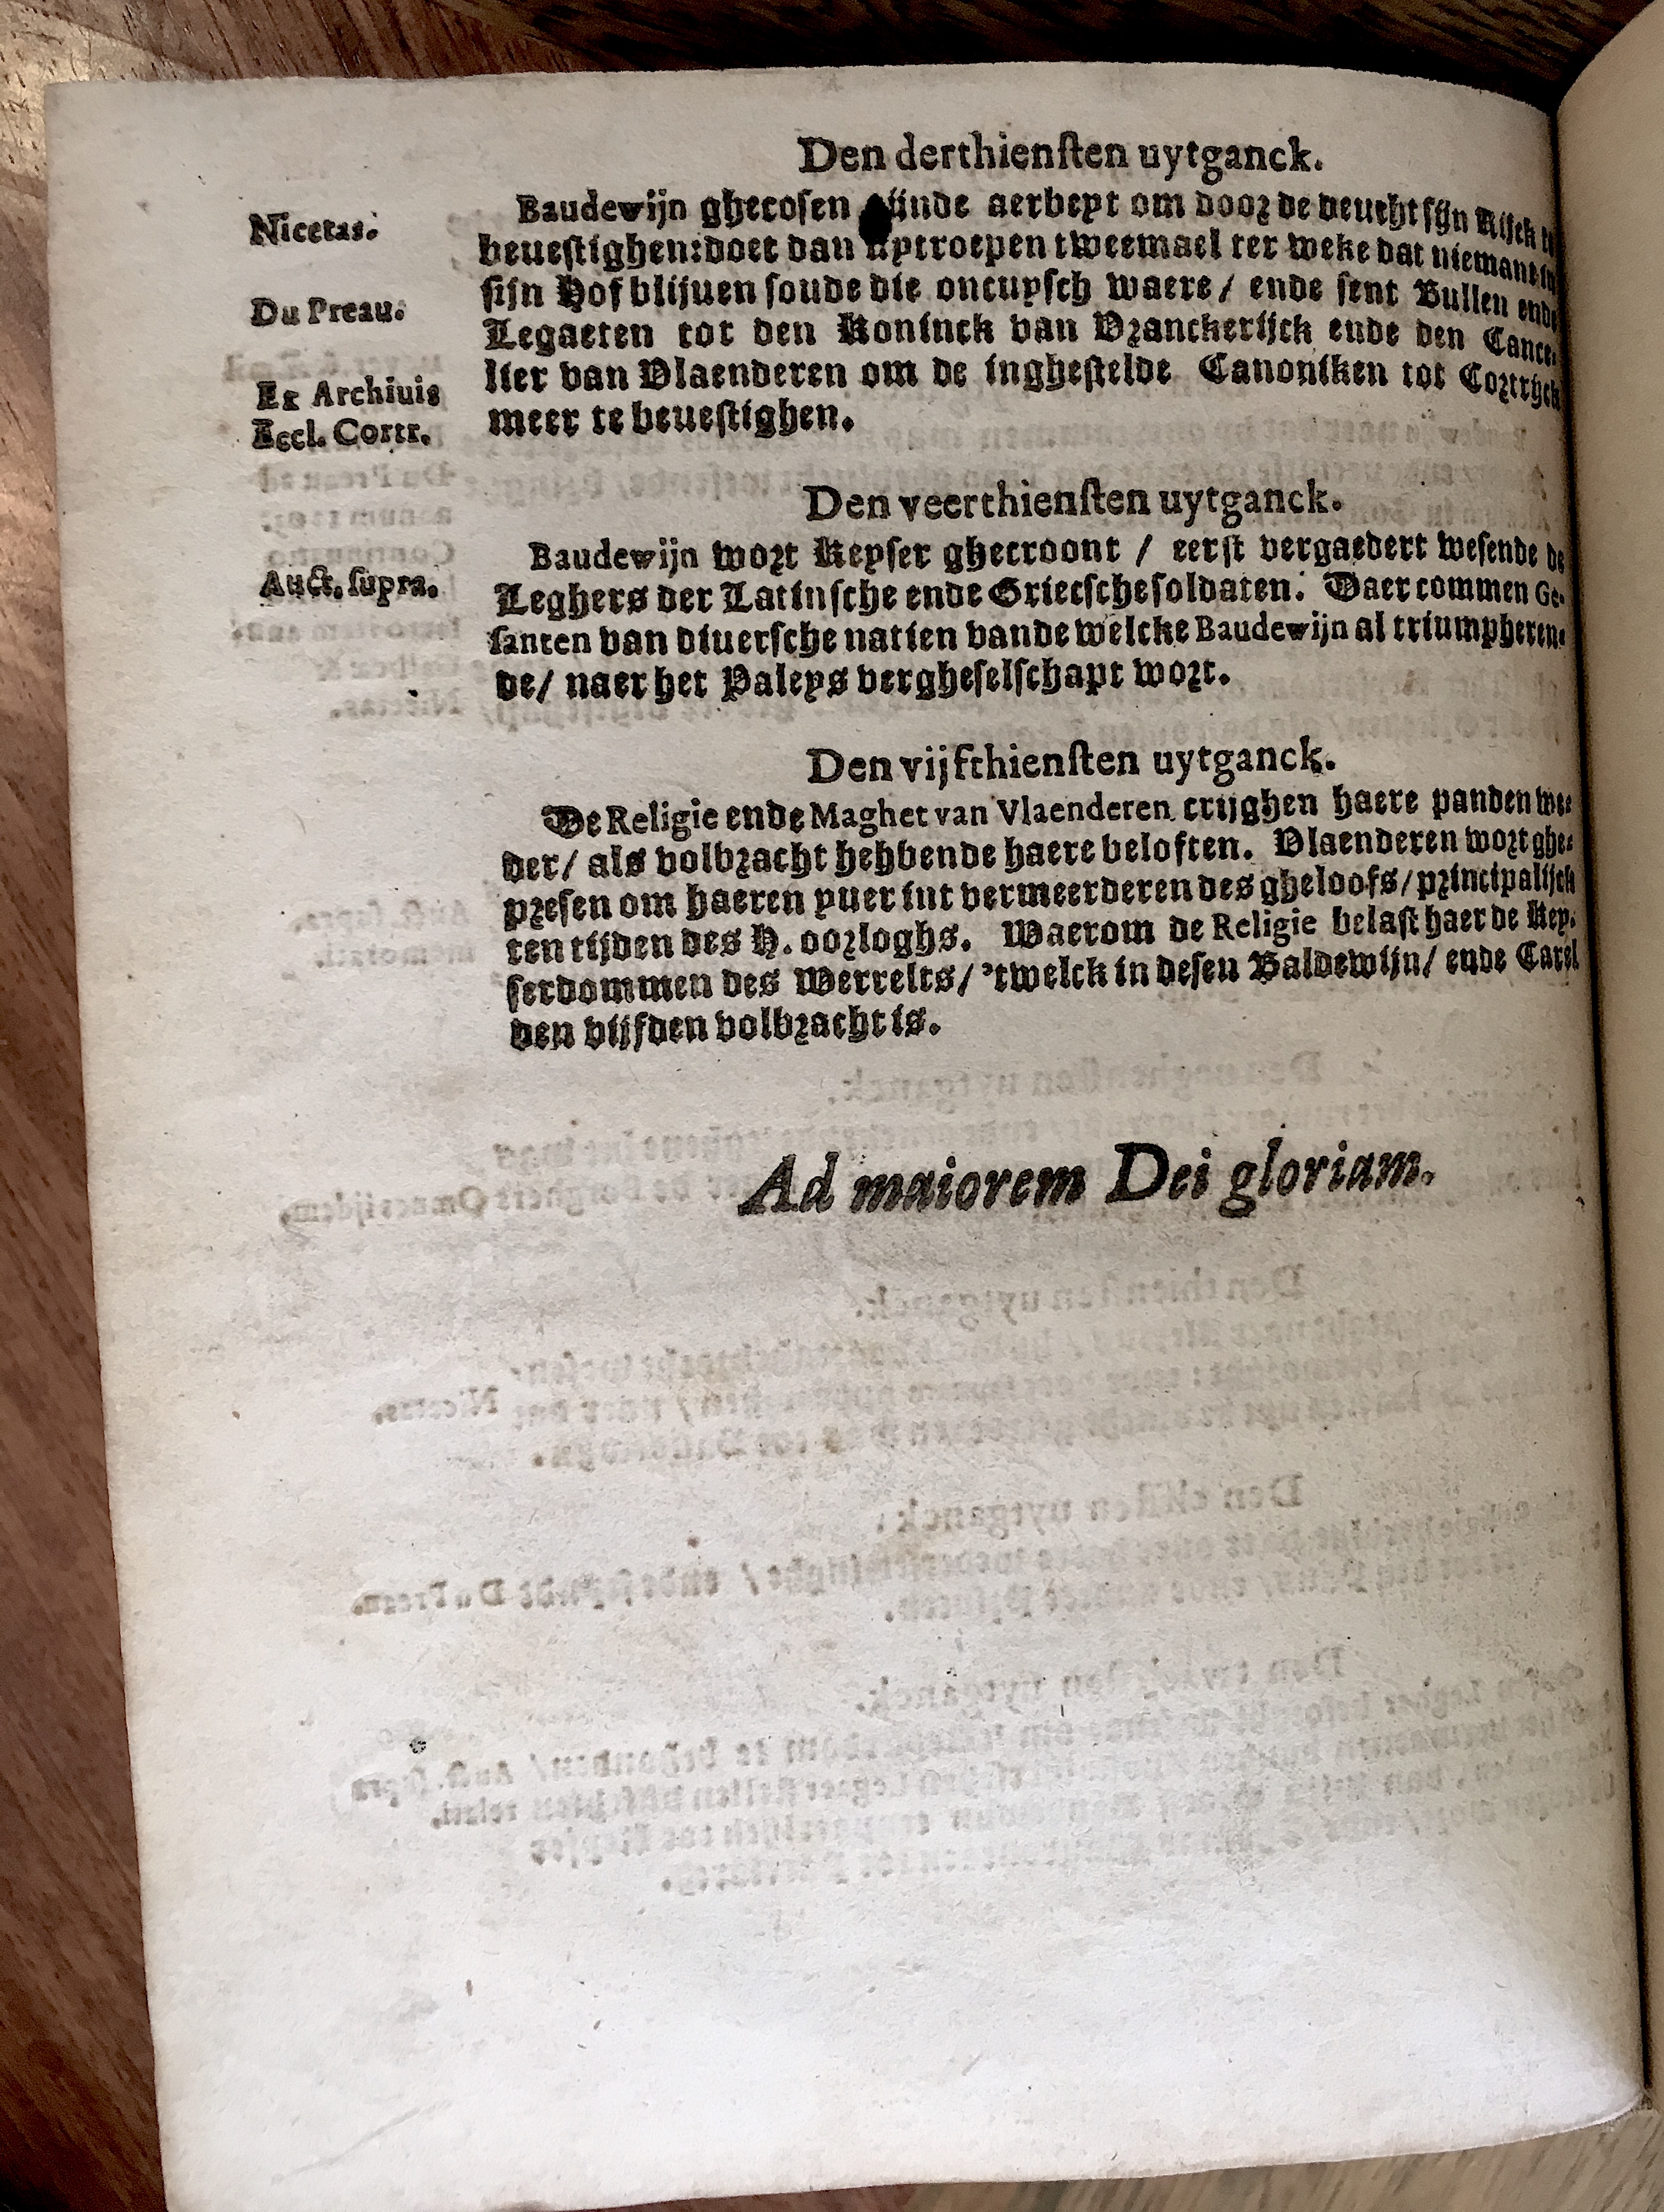 Den derthiensten uytganck.
Nicetas.
Baudewijn ghecosen sijnde aerbeyt om door de deucht sijn Rijck te
beuestighen: doet dan uytroepen tweemael ter weke dat niemant in
sijn Hof blijuen soude die oncuysch waere / ende sent Bullen ende
Du Preau.
Legaeten tot den Koninck van Vranckerijck ende den Cance-
lier van Vlaenderen om de inghestelde Canoniken tot Cortrijck
Ex Archiuis
Eccl. Cortr.
meer te beuestighen.
Den veerthiensten uytganck.
Baudewijn wort Keyser ghecroont / eerst vergaedert wesende de
Auct. supra.
Leghers der Latinsche ende Griecsche soldaten. Daer commen Ge-
santen van diuersche natien vande welcke Baudewijn al triumpheren-
de/ naer het Paleys vergheselschapt wort.
Den vijfthiensten uytganck.
De Religie ende Maghet van Vlaenderen crijghen haere panden we-
der/ als volbracht hebbende haere beloften. Vlaenderen wort ghe-
presen om haeren yuer int vermeerderen des gheloofs/ principalijck
ten tijden des H. oorloghs. Waerom de Religie belast haer de Key-
serdommen des Werrelts/ 'twelck in desen Baldewijn/ ende Carel
den vijfden volbracht is.
Ad maiorem Dei gloriam.